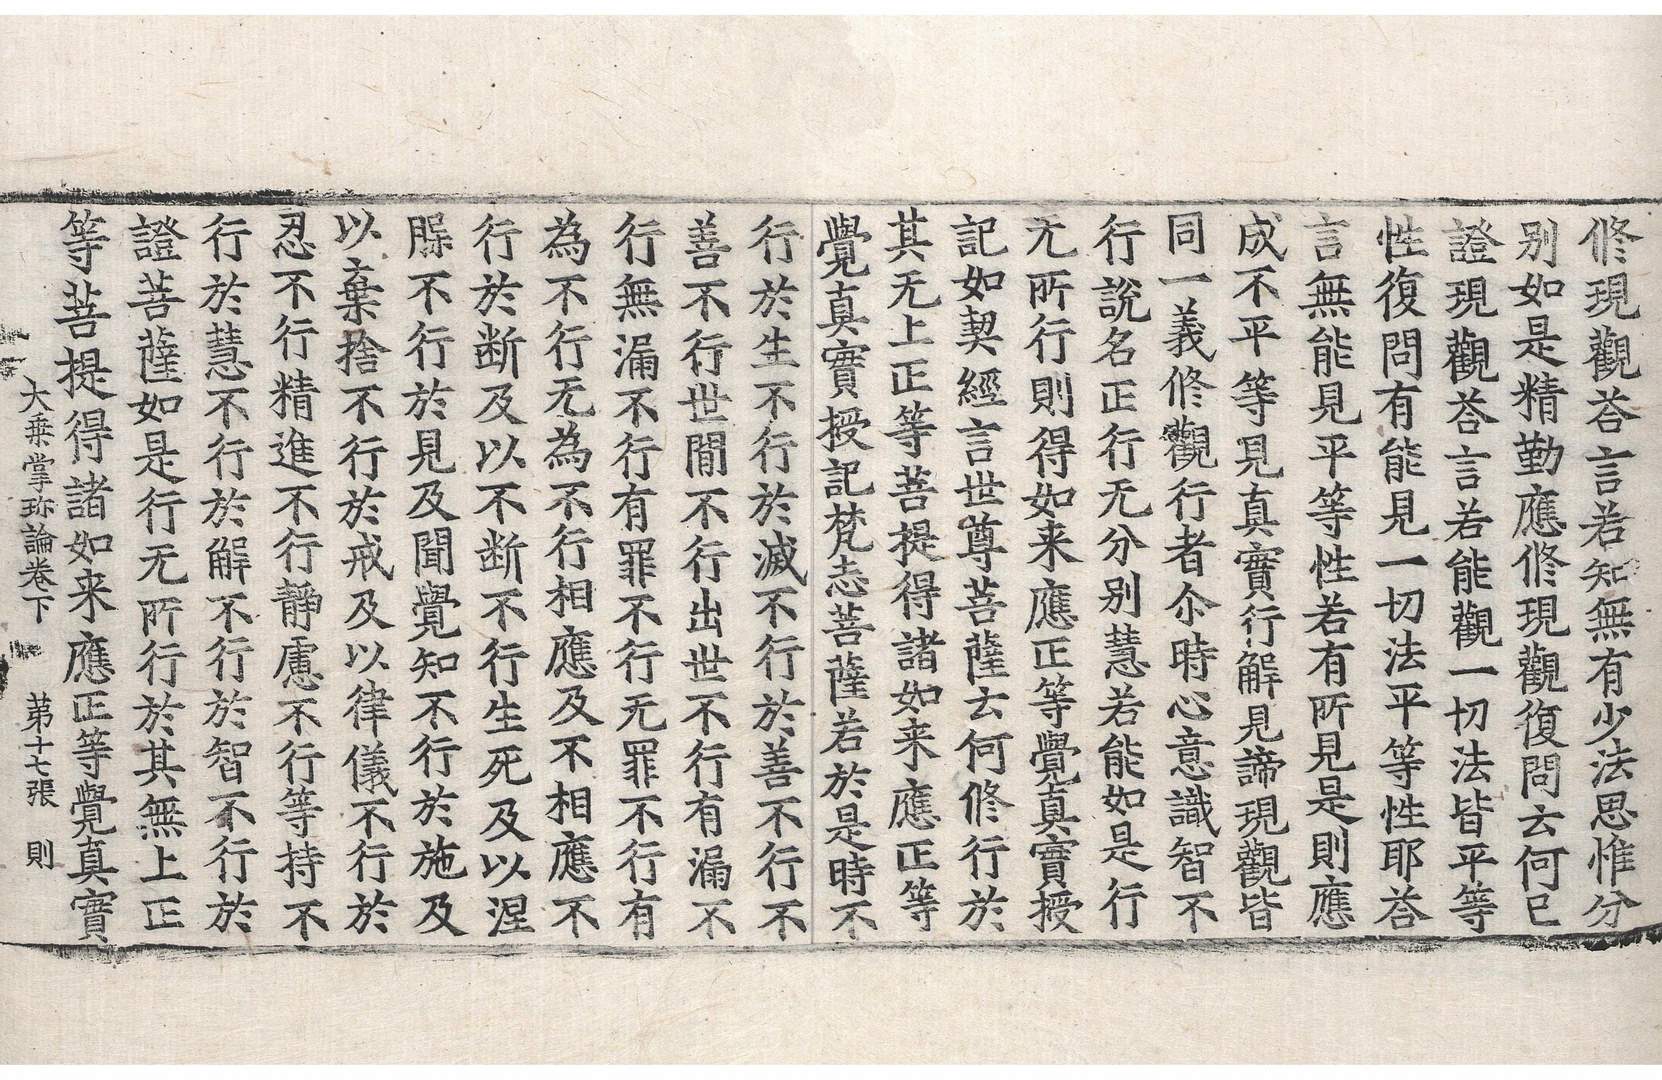 修現觀荅言若知無有少法思惟分
別如是精勤應修現觀復問云何已
證現觀荅言若能觀一切法皆平等
性復問有能見一切法平等性耶荅
言無能見平等性若有所見是則應
成不平等見真實行解見諦現觀皆
同一義修觀行者尒時心意識智不
行說名正行无分別慧若能如是行
无所行則得如来應正等覺真實授
記如契經言世尊菩薩云何修行於
其无上正等菩提得諸如来應正等
覺真實授記梵志菩薩若於是時不
行於生不行於滅不行於善不行不
善不行世間不行出世不行有漏不
行無漏不行有罪不行无罪不行有
為不行无為不行相應及不相應不
行於断及以不断不行生死及以涅
槃不行於見及聞覺知不行於施及
以棄捨不行於戒及以律儀不行於
忍不行精進不行靜慮不行等持不
行於慧不行於解不行於智不行於
證菩薩如是行无所行於其無上正
等菩提得諸如来應正等覺真實
大乗掌珎論卷下 第十七張 則